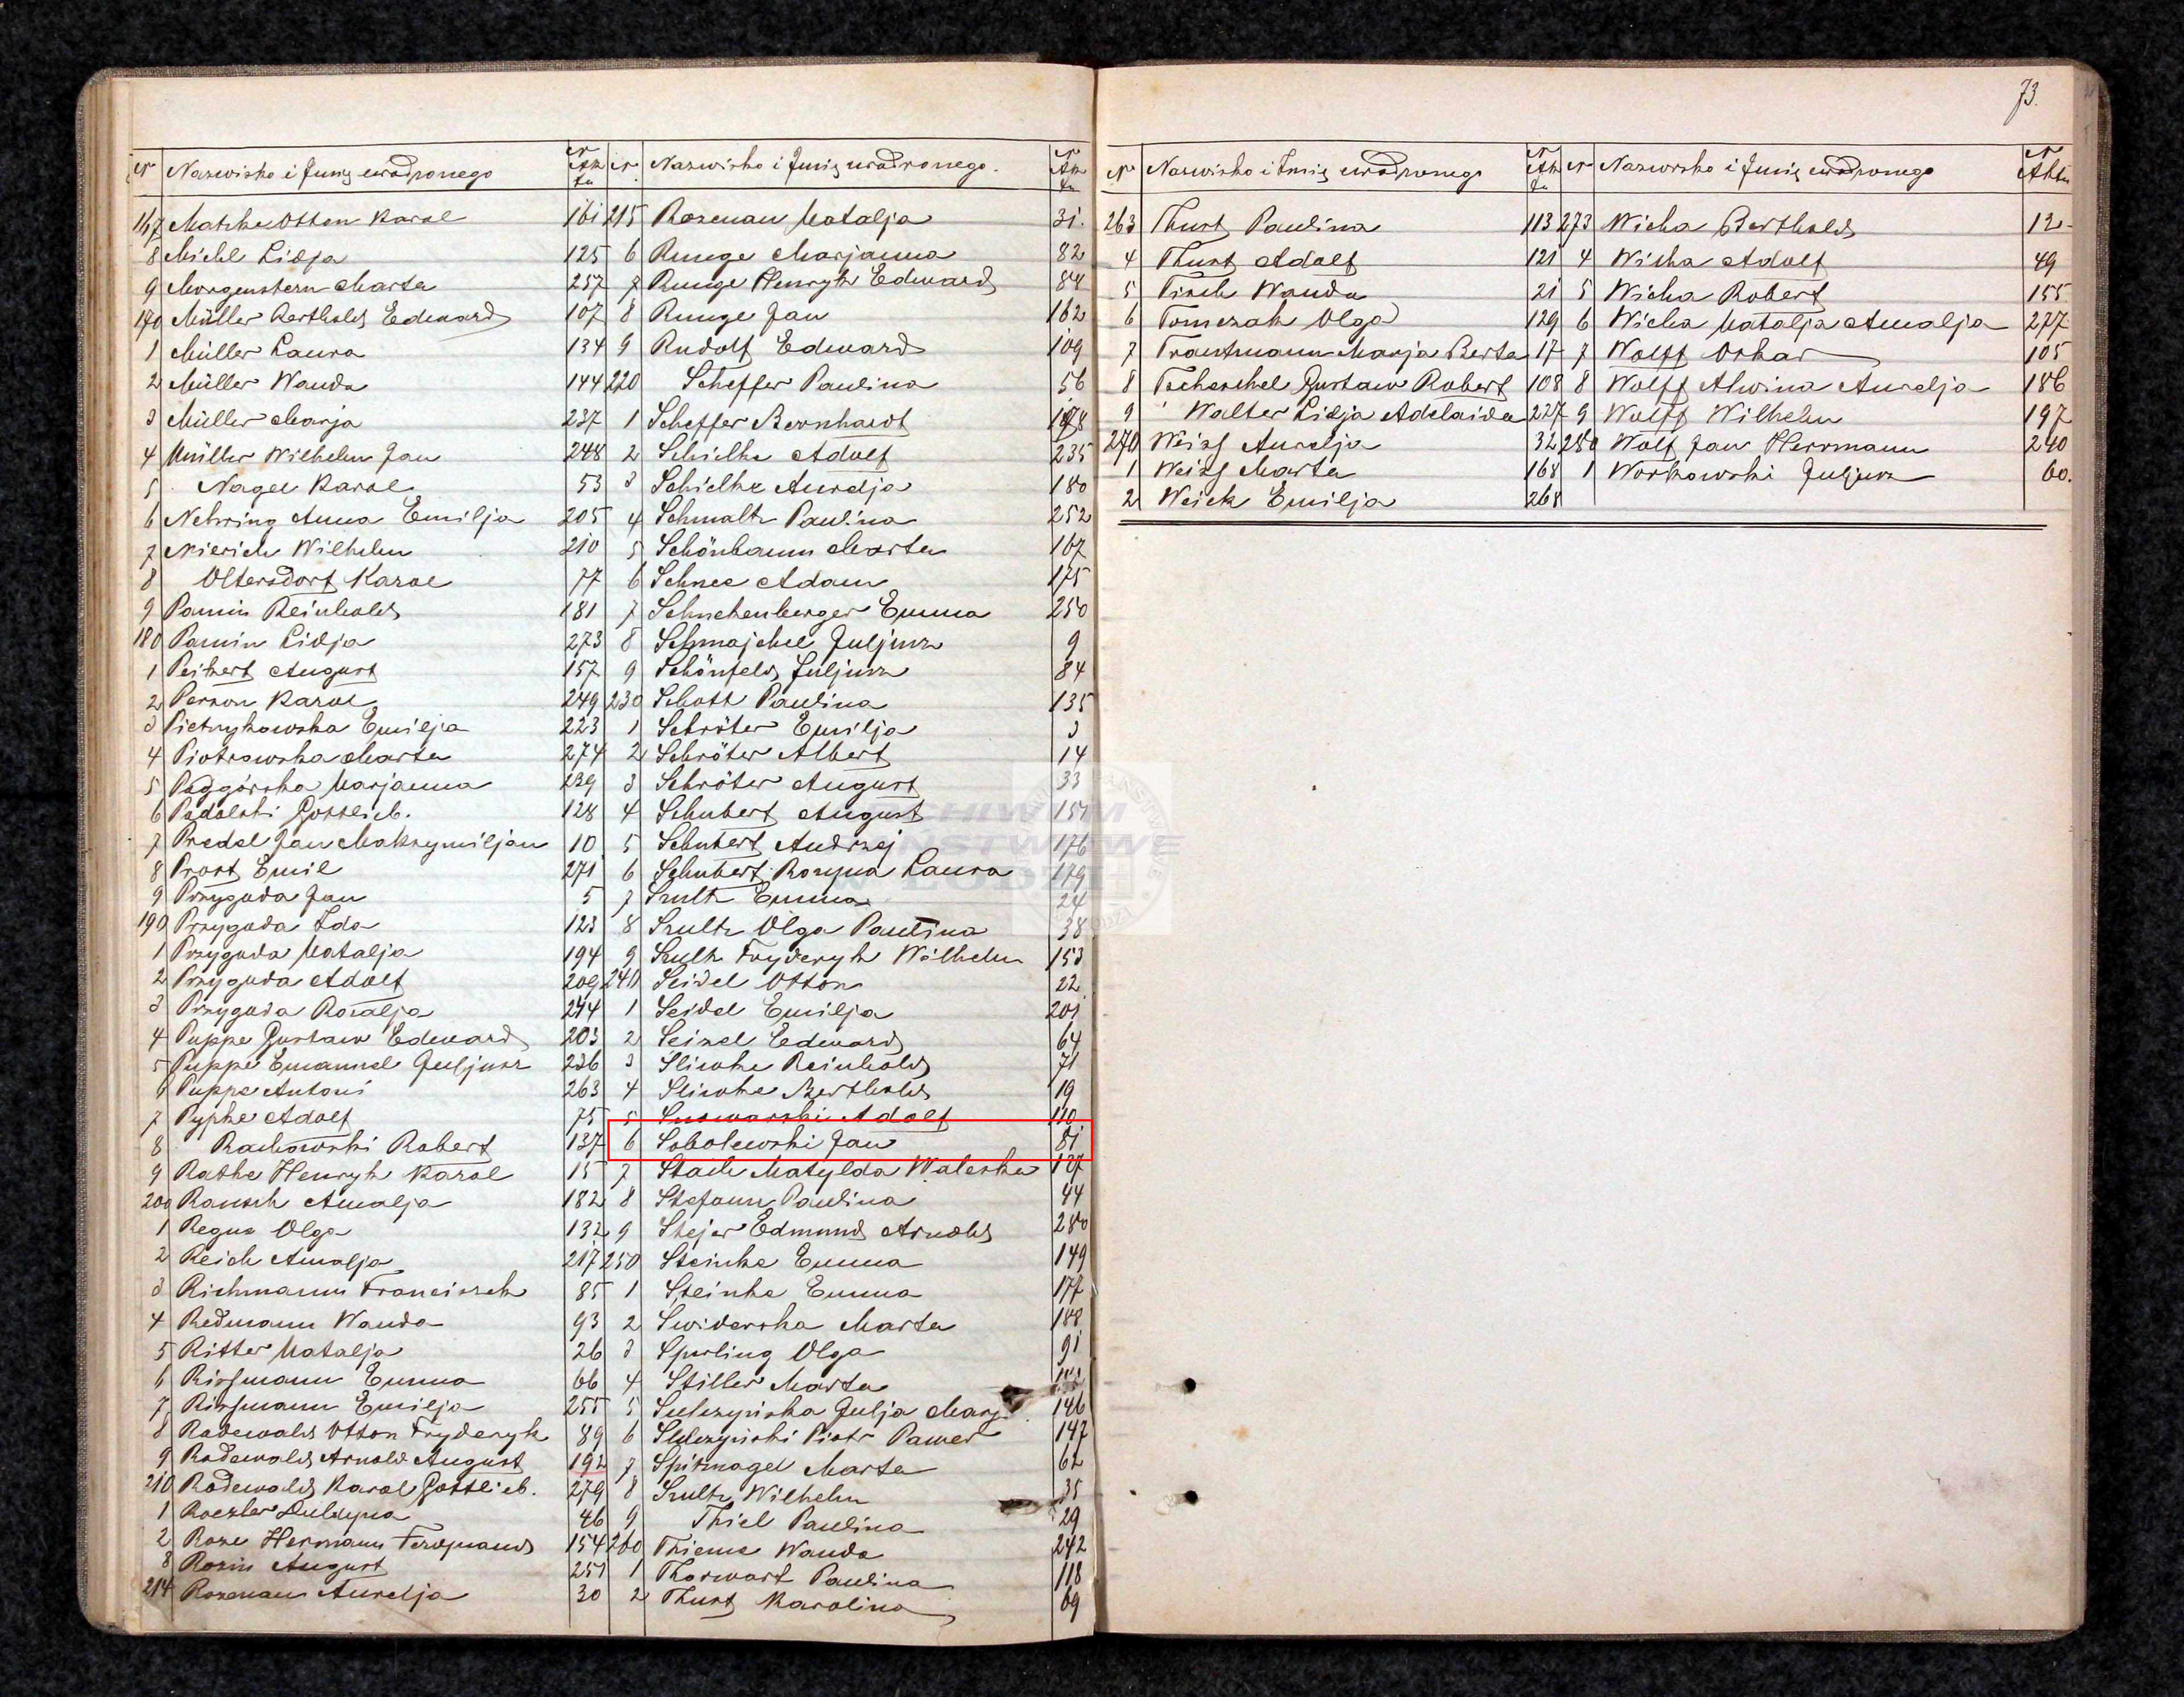 73.
Nr Nazwisko i Imię urodzonego Nr Aktu
167 Matzke Otton Karol 161
8 Michl Lidja 125
9 Morgenstern Marta 257
170 Müller Berthold Edward 107
1 Müller Laura 134
2 Müller Wanda 144
3 Müller Marja 237
4 Müller Wilhelm Jan 248
5 Nagel Karol 53
6 Nehring Anna Emilja 205
7 Nierich Wilhelm 210
8 Oltersdorf Karol 77
9 Pamin Reinhold 181
180 Pamin Lidja 273
1 Peikert August 157
2 Person Karol 249
3 Pietrykowska Emilja 223
4 Piotrowska Marta 274
5 Podgórska Marjanna 239
6 Podolski Gottlieb. 128
7 Predel Jan Maksymiljan 10
8 Prost Emil 271
9 Przygoda Jan 5
190 Przygoda Ida 123
1 Przygoda Natalja 194
2 Przygoda Adolf 209
3 Przygoda Rozalja 244
4 Puppe Gustaw Edward 203
5 Puppe Emanuel Juljusz 236
6 Puppe Antoni 263
7 Pypke Adolf 75
8 Rachowski Robert 137
9 Rathe Henryk Karol 15
200 Rausch Amalja 182
1 Regus Olga 132
2 Reich Amalja 217
3 Richmann Franciszek 85
4 Redmann Wanda 93
5 Ritter Natalja 26
6 Rissmann Emma 66
7 Rissmann Emilja 255
8 Rodewald Otton Fryderyk 89
9 Rodewald Arnold August 192
210 Rodewald Karol Gottlieb. 279
1 Roesler 46
2 Roze Hermann Ferdynand 154
3 Rosin August 251
214 Rozenau Aurelja 30
Nr Nazwisko i Imię urodzonego. Nr Aktu
215 Rozenau Natalja 31.
6 Runge Marjanna 82
7 Runge Henryk Edward 84
8 Runge Jan 162
9 Rudolf Edward 109
220 Scheffer Paulina 56
1 Scheffer Bernhardt
2 Schielke Adolf 235
3 Schielke Aurelja 180
4 Schmaltz Paulina 252
5 Schönbaum Marta 167
6 Schnee Adam 175
7 Schnekenberger Emma 250
8 Schmajchel Juljusz 9
9 Schönfeld Juljusz 84
230 Schott Paulina 135
1 Schröter Emilja 3
2 Schröter Albert 14
3 Schröter August 33
4 Schubert August 151
5 Schubert Andrzej 176
6 Schubert Rozyna Laura 179
7 Szultz Emma 24
8 Szultz Olga Paulina 38
9 Szultz Fryderyk Wilhelm 153
240 Seidel Otton 22
1 Seidel Emilja 201
2 Seizel Edward 64
3 Sliwke Reinhold 71
4 Sliwke Berthold 19
5 Snowarski Adolf 110
6 Sobolewski Jan 81
7 Stach Matylda Waleska 127
8 Stefann Paulina 44
9 Stejer Edmund Arnold 280
250 Steinke Emma 149
1 Steinke Emma 177
2 Swiderska Marta 188
3 Sperling Olga 91
4 Stiller Marta
5 Sulczynska Julja Marj 146
6 Sulczynski Piotr Pawel 147
7 Spitznagel Marta 62
8 Szultz Wilhelm 35
9 Thiel Paulina 29
260 Thieme Wanda 242
1 Thorwart Paulina 118
2 Thust Karolina 69
Nr Nazwisko i Imię urodzonego Nr Aktu
263 Thust Paulina 113
4 Thust Adolf 121
5 Tisch Wanda 21
6 Tomczak Olga 129
7 Trautmann Marja Berta 17
8 Tscheschel Gustaw Robert 108
9 Walter Lidja Adelaida 227
270 Weiss Aurelja 32
1 Weiss Marta 168
2 Weick Emilja 268
Nr Nazwisko i Imię urodzonego Nr Aktu
273 Wicha Berthold 12
4 Wicha Adolf 49
5 Wicha Robert 155
6 Wicha Natalja Amalja 277
7 Wolff Oskar 105
8 Wolff Alwina Aurelja 186
9 Wolff Wilhelm 197
280 Wolf Jan Herrmann 240
1 Workowski Juljusz 60.